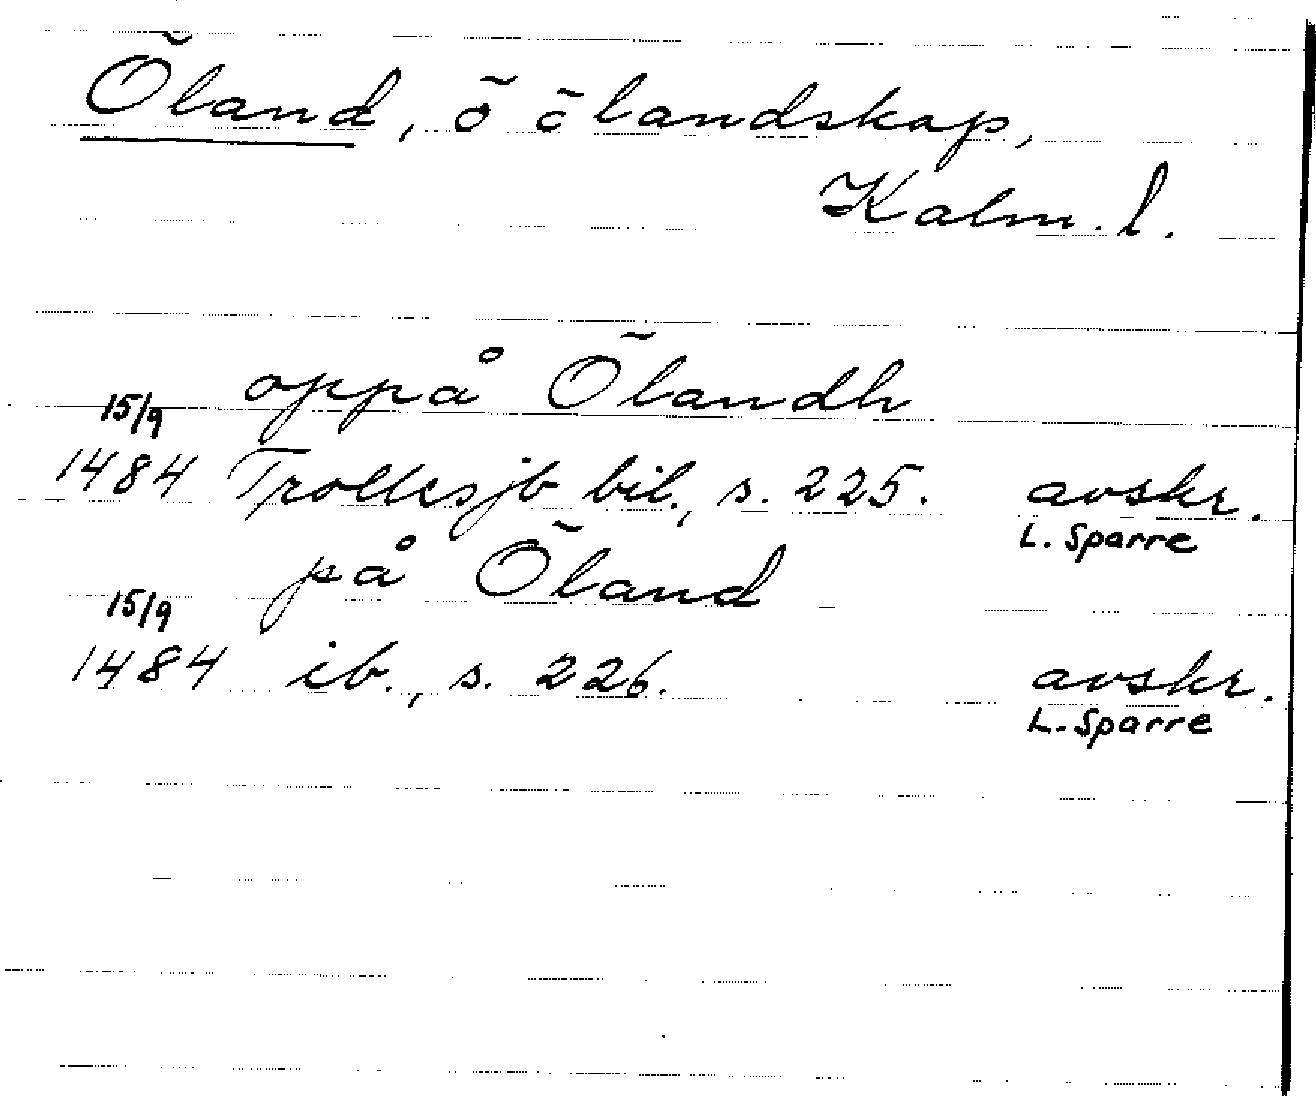 Öland, ö ō landskap,
Kalm. l.
oppå Ölandh
15/9
1484 Trolles jb bil., s. 225. avskr.
L. Sparre
på Öland
15/9
1484 ib., s. 226. avskr.
L. Sparre